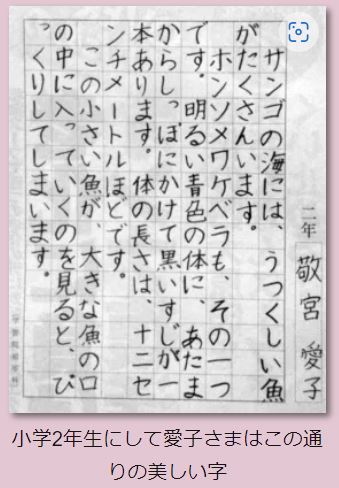 二年 敬宮 愛子
サンゴの海には、うつくしい魚
がたくさんいます。
ホンソメワケベラも、その一つ
です。明るい青色の体に、あたま
からしっぽにかけて黒いすじが一
本あります。体の長さは、十二セ
ンチメートルほどです。
この小さい魚が、大きな魚の口
の中に入っていくのを見ると、び
っくりしてしまいます。
小学2年生にして愛子さまはこの通
りの美しい字